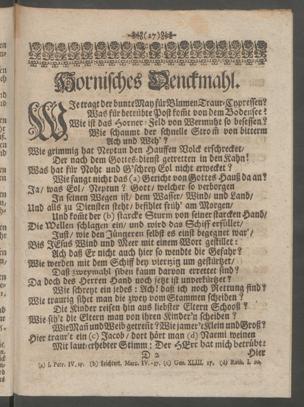 (27)
Hornisches Denckmahl.
Wje tragt der bunte May für Blumen Traur-Cypressen?
Was für betrübte Post kömt von dem Bodensee?
Wie ist das Horner-Feld von Wermuht so besessen?
Wie schaumt der schnelle Strom von bitterm
Ach und Weh?
Wie grimmig hat Neptun den Hauffen Volck erschrecket/
Der nach dem Gottes-dienst getretten in den Kahn!
Was hat für Noht und G'schrey Eol nicht erwecket?
Wie fangt nicht das (a) Gericht von Gottes Hauß da an?
Ja/ was Eol/ Neptun? Gott/ welcher so verborgen
In seinen Wegen ist/ dem Wasser/ Wind/ und Land/
Und alls zu Diensten steht/ befihlet früh' am Morgen/
Und kömt der (b) starcke Sturm von seiner starcken Hand/
Die Wellen schlagen ein/ und wird das Schiff erfüllet/
Just/ wie den Jüngern selbst es einst begegnet war/
Bis JEsus Wind und Meer mit einem Wort gestillet:
Ach daß Er nicht auch hier so wendte die Gefahr?
Wie werden mit dem Schiff bey viertzig umgestürtzet/
Daß zweymahl siben kaum darvon errettet sind?
Da doch des Herren Hand noch jetzt ist unverkürtzet?
Wie schreyt ein jedes: Ach! daß ich noch Rettung find?
Wie traurig sihet man die zwey vom Stammen scheiden?
Die Kinder reisen hin aus liebster Eltern Schooß?
Wie sih't die Eltern man von ihren Kinder'n scheiden?
Wie Man und Weib getrent? Wie jamer't Klein und Groß?
Hier traur't ein (c) Jacob/ dort hört man (d) Naemi weinen
Mit laut-erhebter Stimm: Der HErr hat mich betrübt:
D 2 Hier
(a) 1. Petr. IV. 17. (b) Marc. IV. -37. (c) Gen. XLIII. 17. (d) Ruth. I. 20.